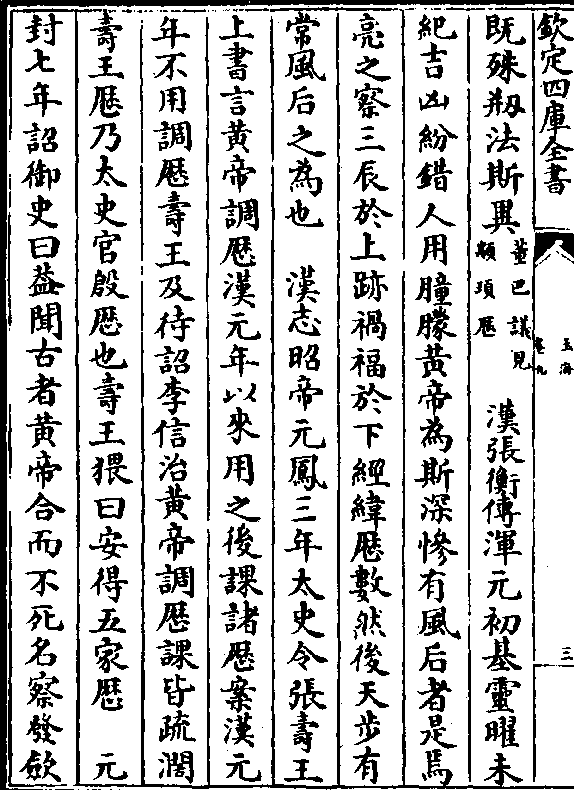 欽定四庫全書
玉海
卷九
三
既殊剏法斯異董巴議見顓頊厯 漢張衡傳渾元初基靈曜未
紀吉凶紛錯人用朣朦黄帝為斯深慘有風后者是焉
亮之察三辰於上跡禍福於下經緯厯數然後天步有
常風后之為也 漢志昭帝元鳳三年太史令張壽王
上書言黄帝調厯漢元年以來用之後課諸厯案漢元
年不用調厯壽王及待詔李信治黄帝調厯課皆疏濶
壽王厯乃太史官殷厯也壽王猥曰安得五家厯 元
封七年詔御史曰葢聞古者黄帝合而不死名察發斂